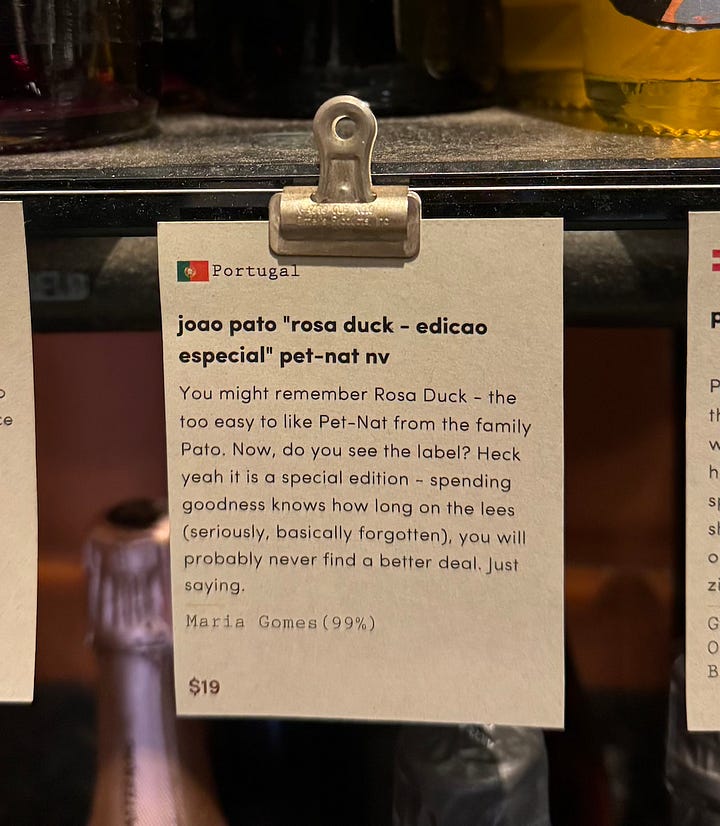 Portugal
joao pato "rosa duck - edicao
especial" pet-nat nv
You might remember Rosa Duck - the
too easy to like Pet-Nat from the family
Pato. Now, do you see the label? Heck
yeah it is a special edition - spending
goodness knows how long on the lees
(seriously, basically forgotten), you will
probably never find a better deal. Just
saying.
Maria Gomes(99%)
$19